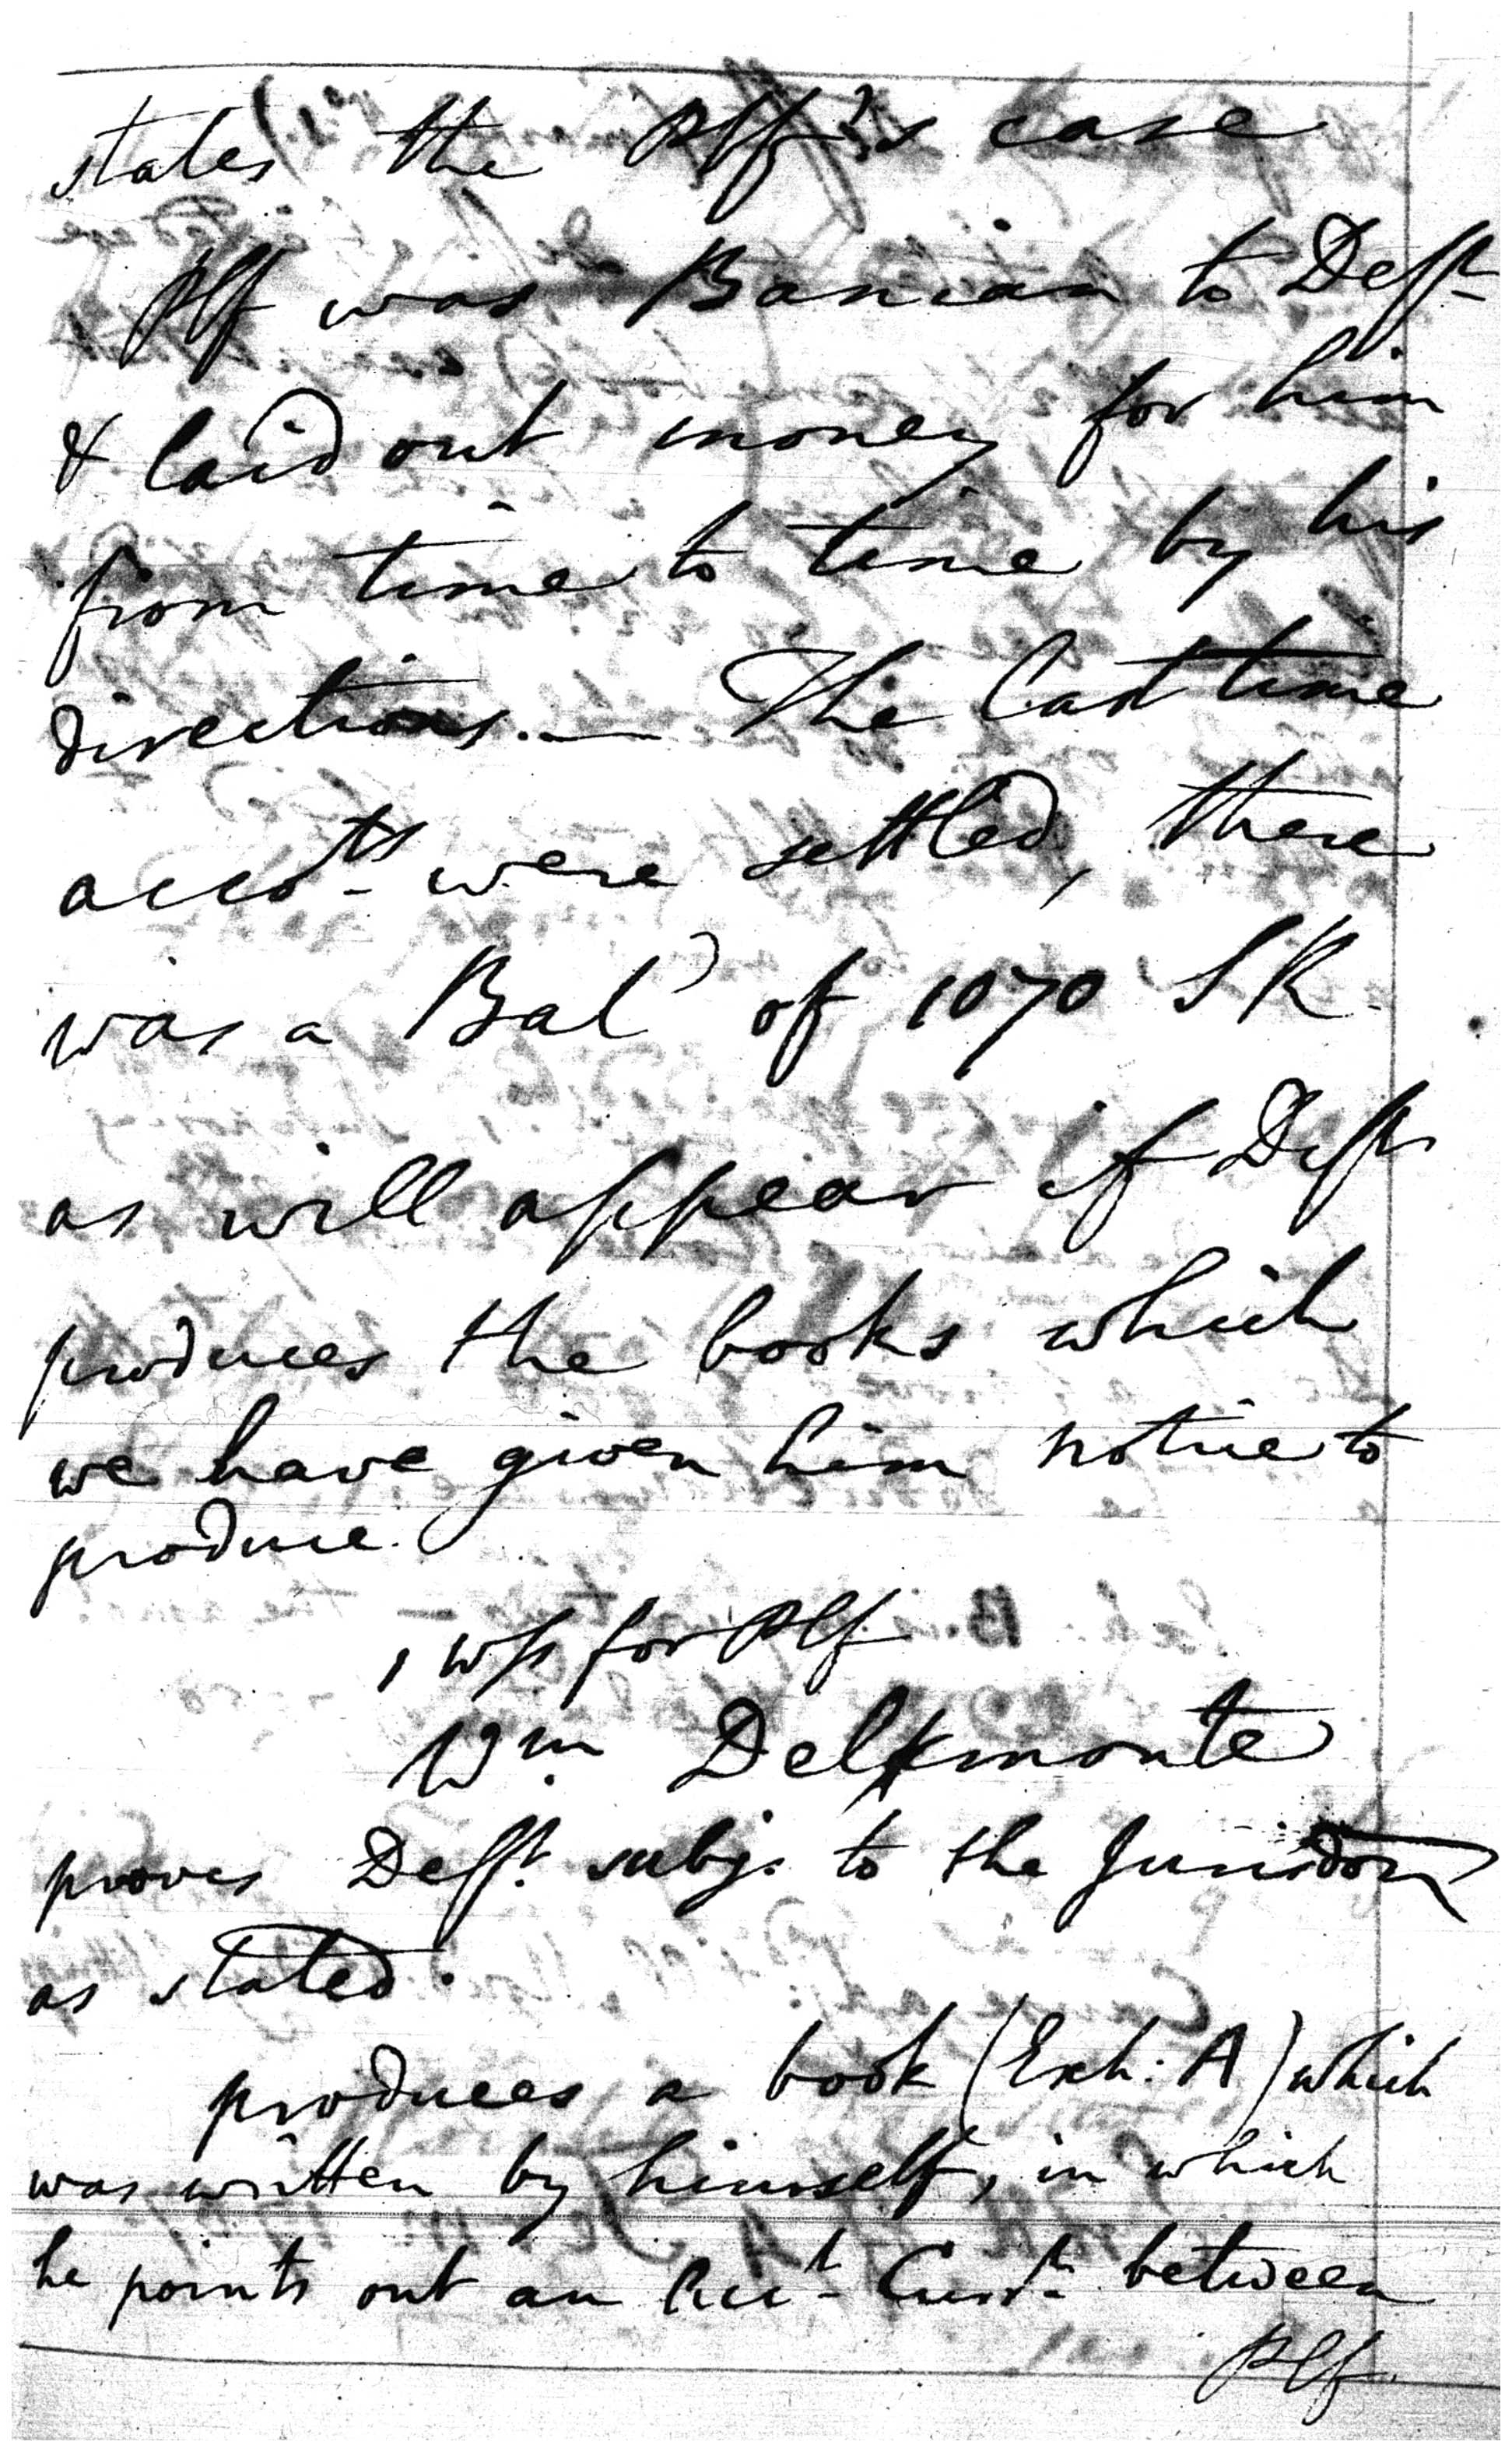 states the Plf's case
Plf was Banian to Deft
& laid out money for him
from time to time by his
directions. — The last time
accots were settled, there
was a Bal of 1070 SR.
as will appear if Deft
produces the books which
we have given him notice to
produce.
1 wss for Plf
Wm Delmonte
proves Deft. subj. to the Jurisdon
as stated.
produces a book (Exh: A) which
was written by himself, in which
he points out an Acct Currt between
Plf